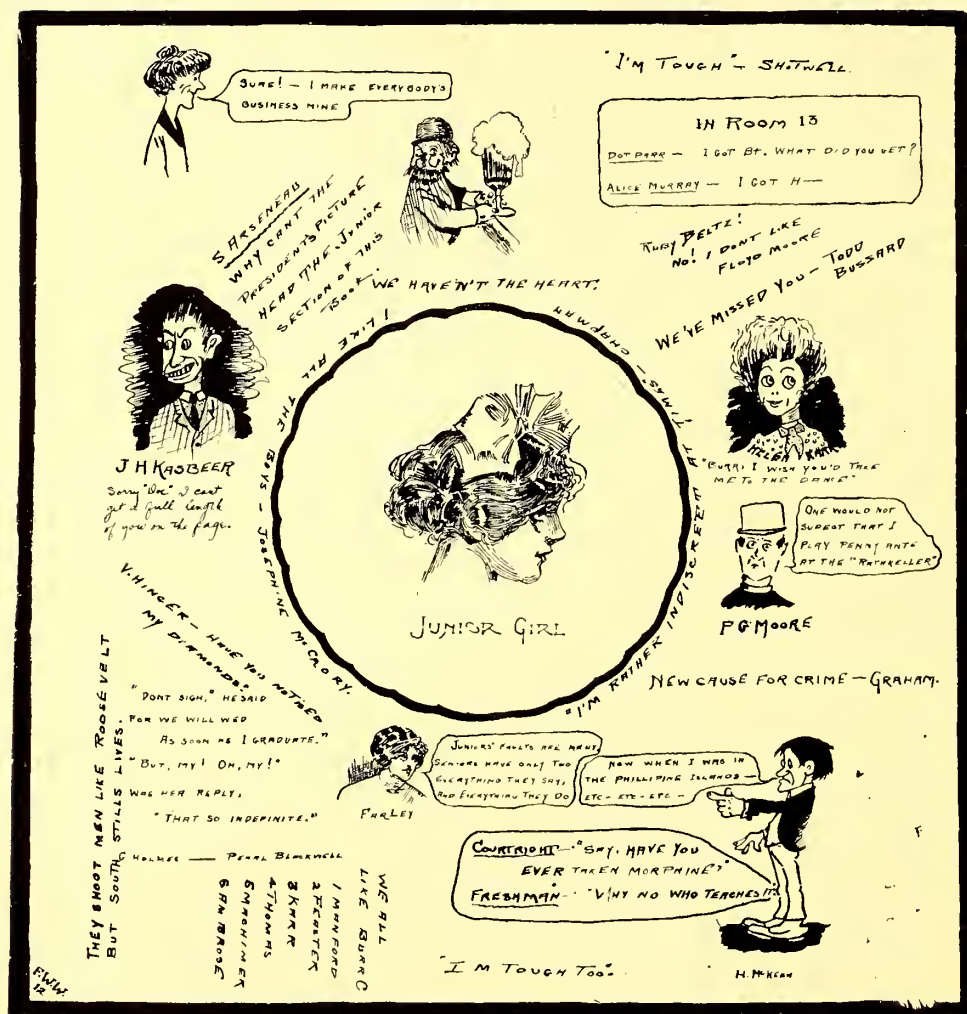 SURE! — I MAKE EVERYBODY'S
BUSINESS MINE
"I'M TOUGH" — SHOTWELL.
IN ROOM 13
DOT PARR — I GOT B+. WHAT DID YOU GET?
ALICE MURRAY — I GOT H—
S ARSENEAU
WHY CAN'T THE
PRESIDENT'S PICTURE
HEAD THE JUNIOR
SECTION OF THIS
BOOK.
WE HAVEN'T THE HEART!
RUBY BELTZ!
NO! I DONT LIKE
FLOYD MOORE
WE'VE MISSED YOU — TODD
BUSSARD
J H KASBEER
Sorry "Doc" I cant
get a full length
of you on the page.
I LIKE ALL THE BOYS — JOSEPHINE McCRORY.
"I'M RATHER INDISCREET AT TIMES — CHAPMAN
JUNIOR GIRL
HELEN KARR
"BURR, I WISH YOU'D TAKE
ME TO THE DANCE"
ONE WOULD NOT
SUPECT THAT I
PLAY PENNY ANTE
AT THE "RATHKELLER"
P G MOORE
V. HINGER — HAVE YOU NOTICED
MY DIAMONDS?
NEW CAUSE FOR CRIME — GRAHAM.
THEY SHOOT MEN LIKE ROOSEVELT
BUT SOUTH STILLS LIVES.
"DONT SIGH," HE SAID
FOR WE WILL WED
AS SOON AS I GRADUATE."
"BUT, MY! OH, MY!"
WAS HER REPLY,
"THAT SO INDEFINITE."
HOLMES — PEARL BLACKWELL
JUNIORS' FAULTS ARE MANY
SENIORS HAVE ONLY TWO
EVERYTHING THEY SAY,
AND EVERYTHING THEY DO
FARLEY
NOW WHEN I WAS IN
THE PHILLIPINE ISLANDS —
ETC — ETC — ETC —
COURTRIGHT — "SAY, HAVE YOU
EVER TAKEN MORPHINE?"
FRESHMAN — "WHY NO WHO TEACHES IT?"
H. McKEAN
WE ALL
LIKE BURR C
1 MANFORD
2 FEASTER
3 KARR
4 THOMAS
5 MACHINER
6 AMBROSE
"I M TOUGH TOO".
F.W.W.
12